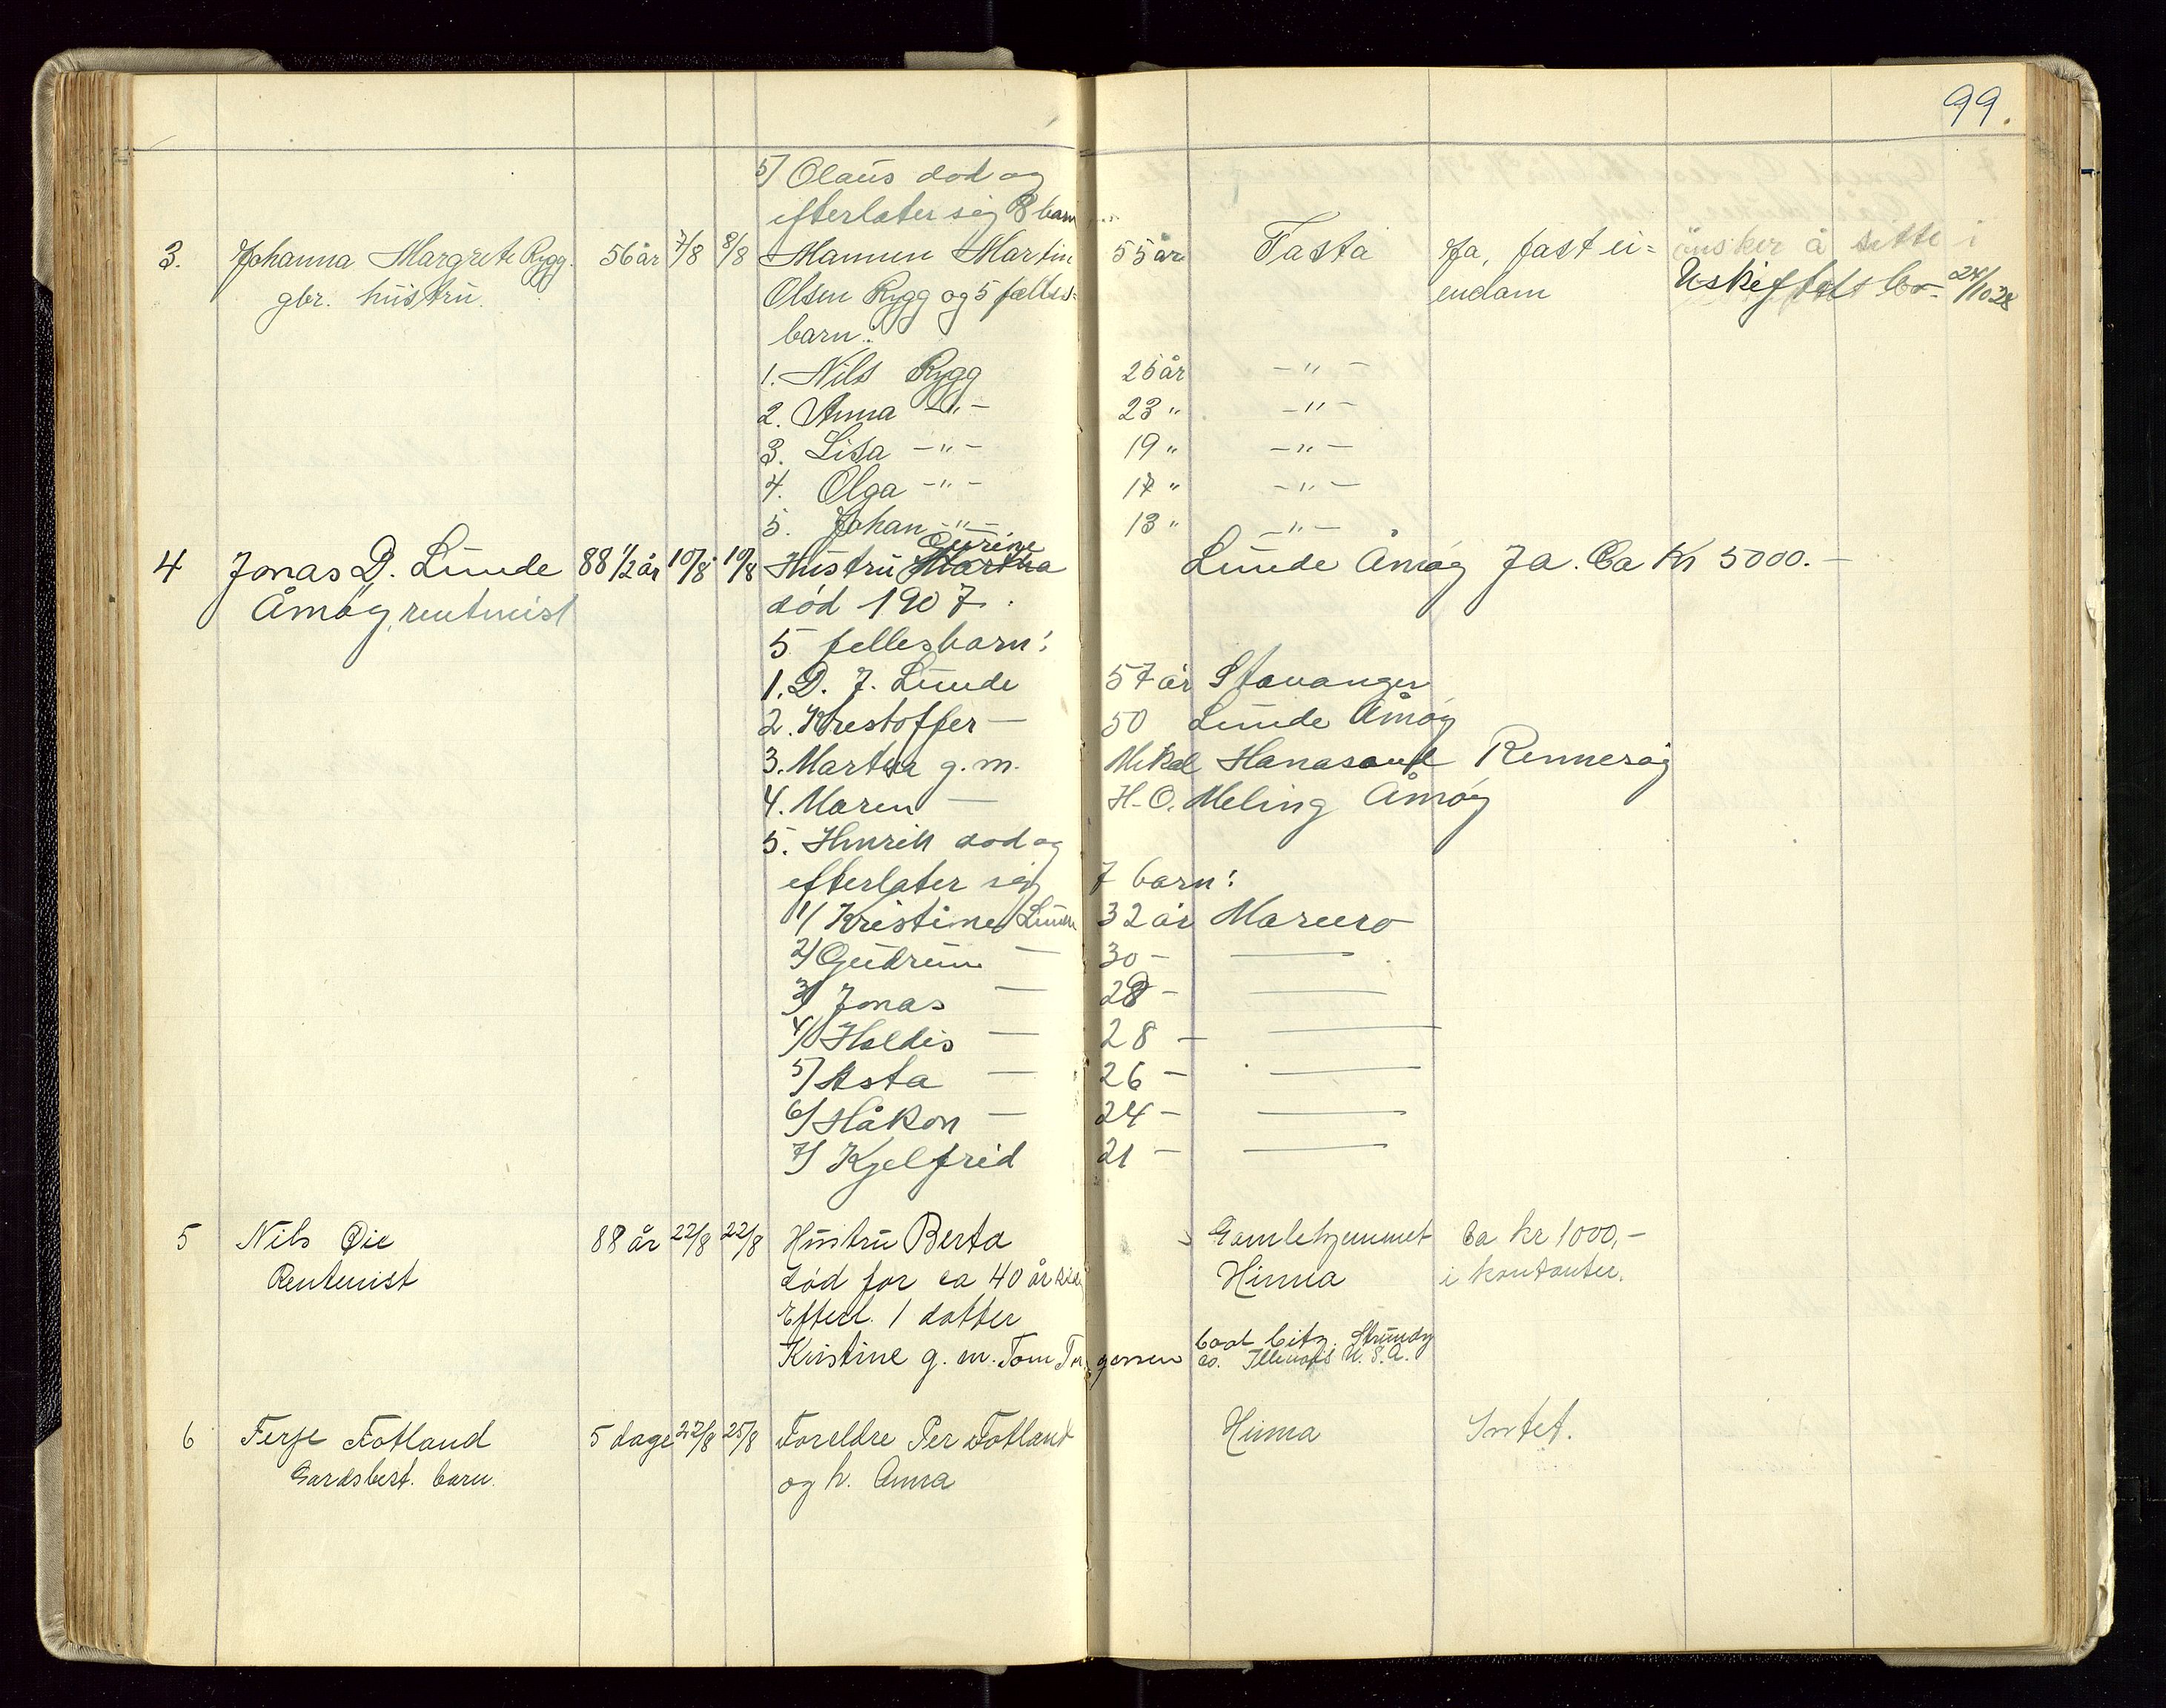 99.
5/ Olaus död og
efterlater sig 8 barn
3. Johanna Margrete Rygg. 56 år 7/8 8/8 Mannen Martin 55 år Tasta Ja, fast ei= önsker å sitte i
gbr. hustru. Olsen Rygg og 5 felles= endom Uskiftet bo 24/10 28
barn:
1. Nils Rygg 25 år -"-
2. Anna -"- 23 " -"-
3. Lisa -"- 19 " -"-
4. Olga -"- 17 " -"-
5. Johan -"- 13 " -"-
4 Jonas D. Lunde 88 1/2 år 10/8 10/8 Hustru Martha Lunde Åmøy Ja. Ca Kr 5000.-
Åmøy, rentenist død 1907.
5 fellesbarn:
1. D. J. Lunde 57 år Stavanger
2. Krestoffer — 50 Lunde Åmøy
3. Martha g. m. Mikal Hanasand Rennesøy
4. Maren — H. O. Meling Åmøy
5. Henrik død og
efterlater sig 7 barn:
1/ Kristine Lunde 32 år Marvero
2/ Gudrun — 30 - —
3/ Jonas — 28 - —
4/ Haldis — 28 - —
5/ Asta — 26 - —
6/ Håkon — 24 - —
7/ Kjelfrid 21 - —
5 Nils Øie 88 år 22/8 22/8 Hustru Berta Gamlehjemmet Ca kr 1000,-
Rentenist død for ca 40 år siden Hinna i kontanter.
Efterl. 1 datter
Kristine g. m. Tom Torgersen Coal City. Grundy
co. Illinois U. S. A.
6 Terje Fotland 5 dage 22/8 25/8 Foreldre Per Fotland Hinna Intet.
Gardsbest. barn. og h. Anna